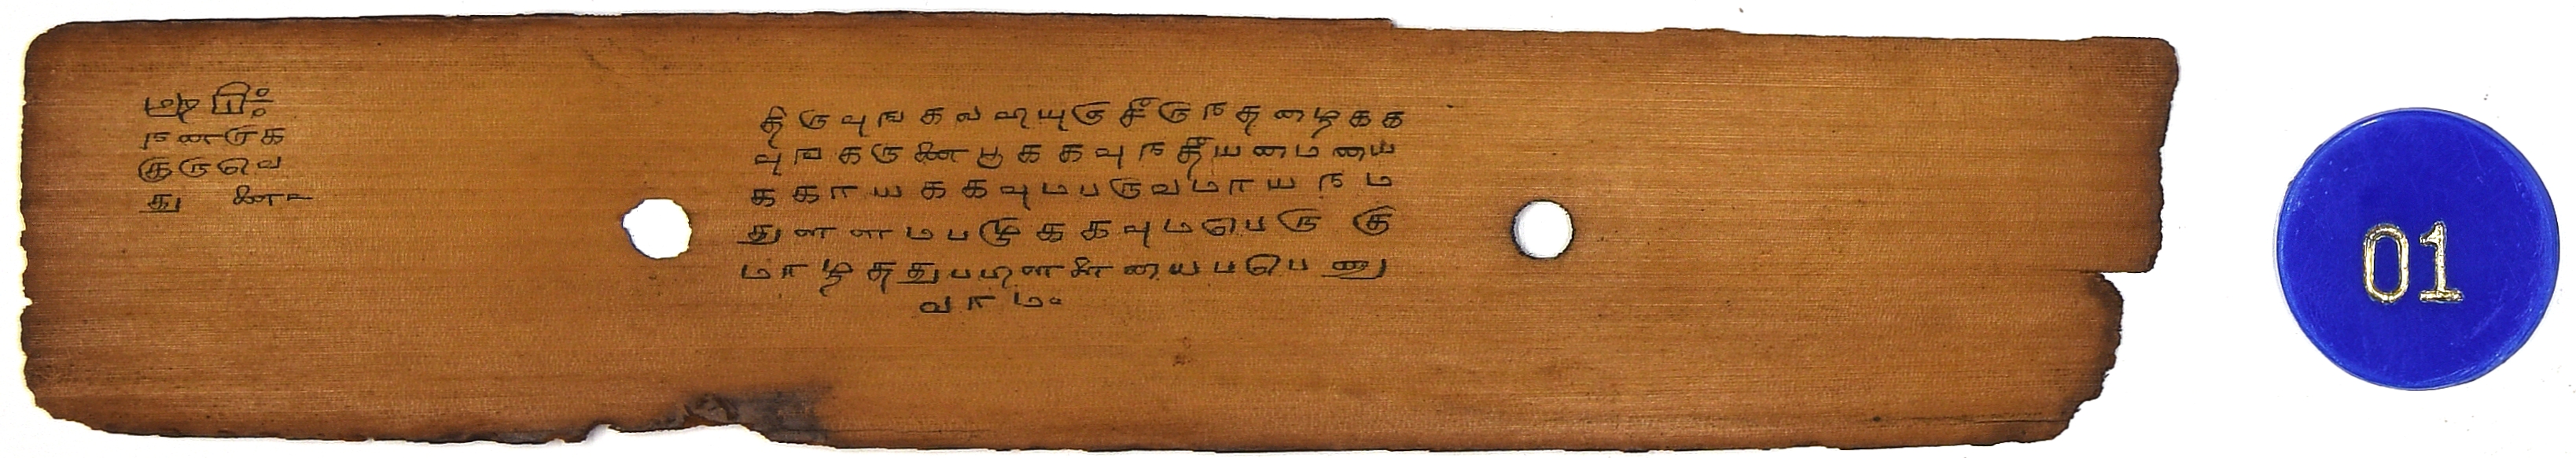 நனறாக
குருவெ
துணை
திருவுஙகலவியுஞசீருநதழைகக
வுஙகருணைபூககவுநதீயமையை
ககாயககவுமபருவமாயநம
துளளமபழுககவுமபெருகு
மாழததுபபிளளையைபபெணு
வாம
01